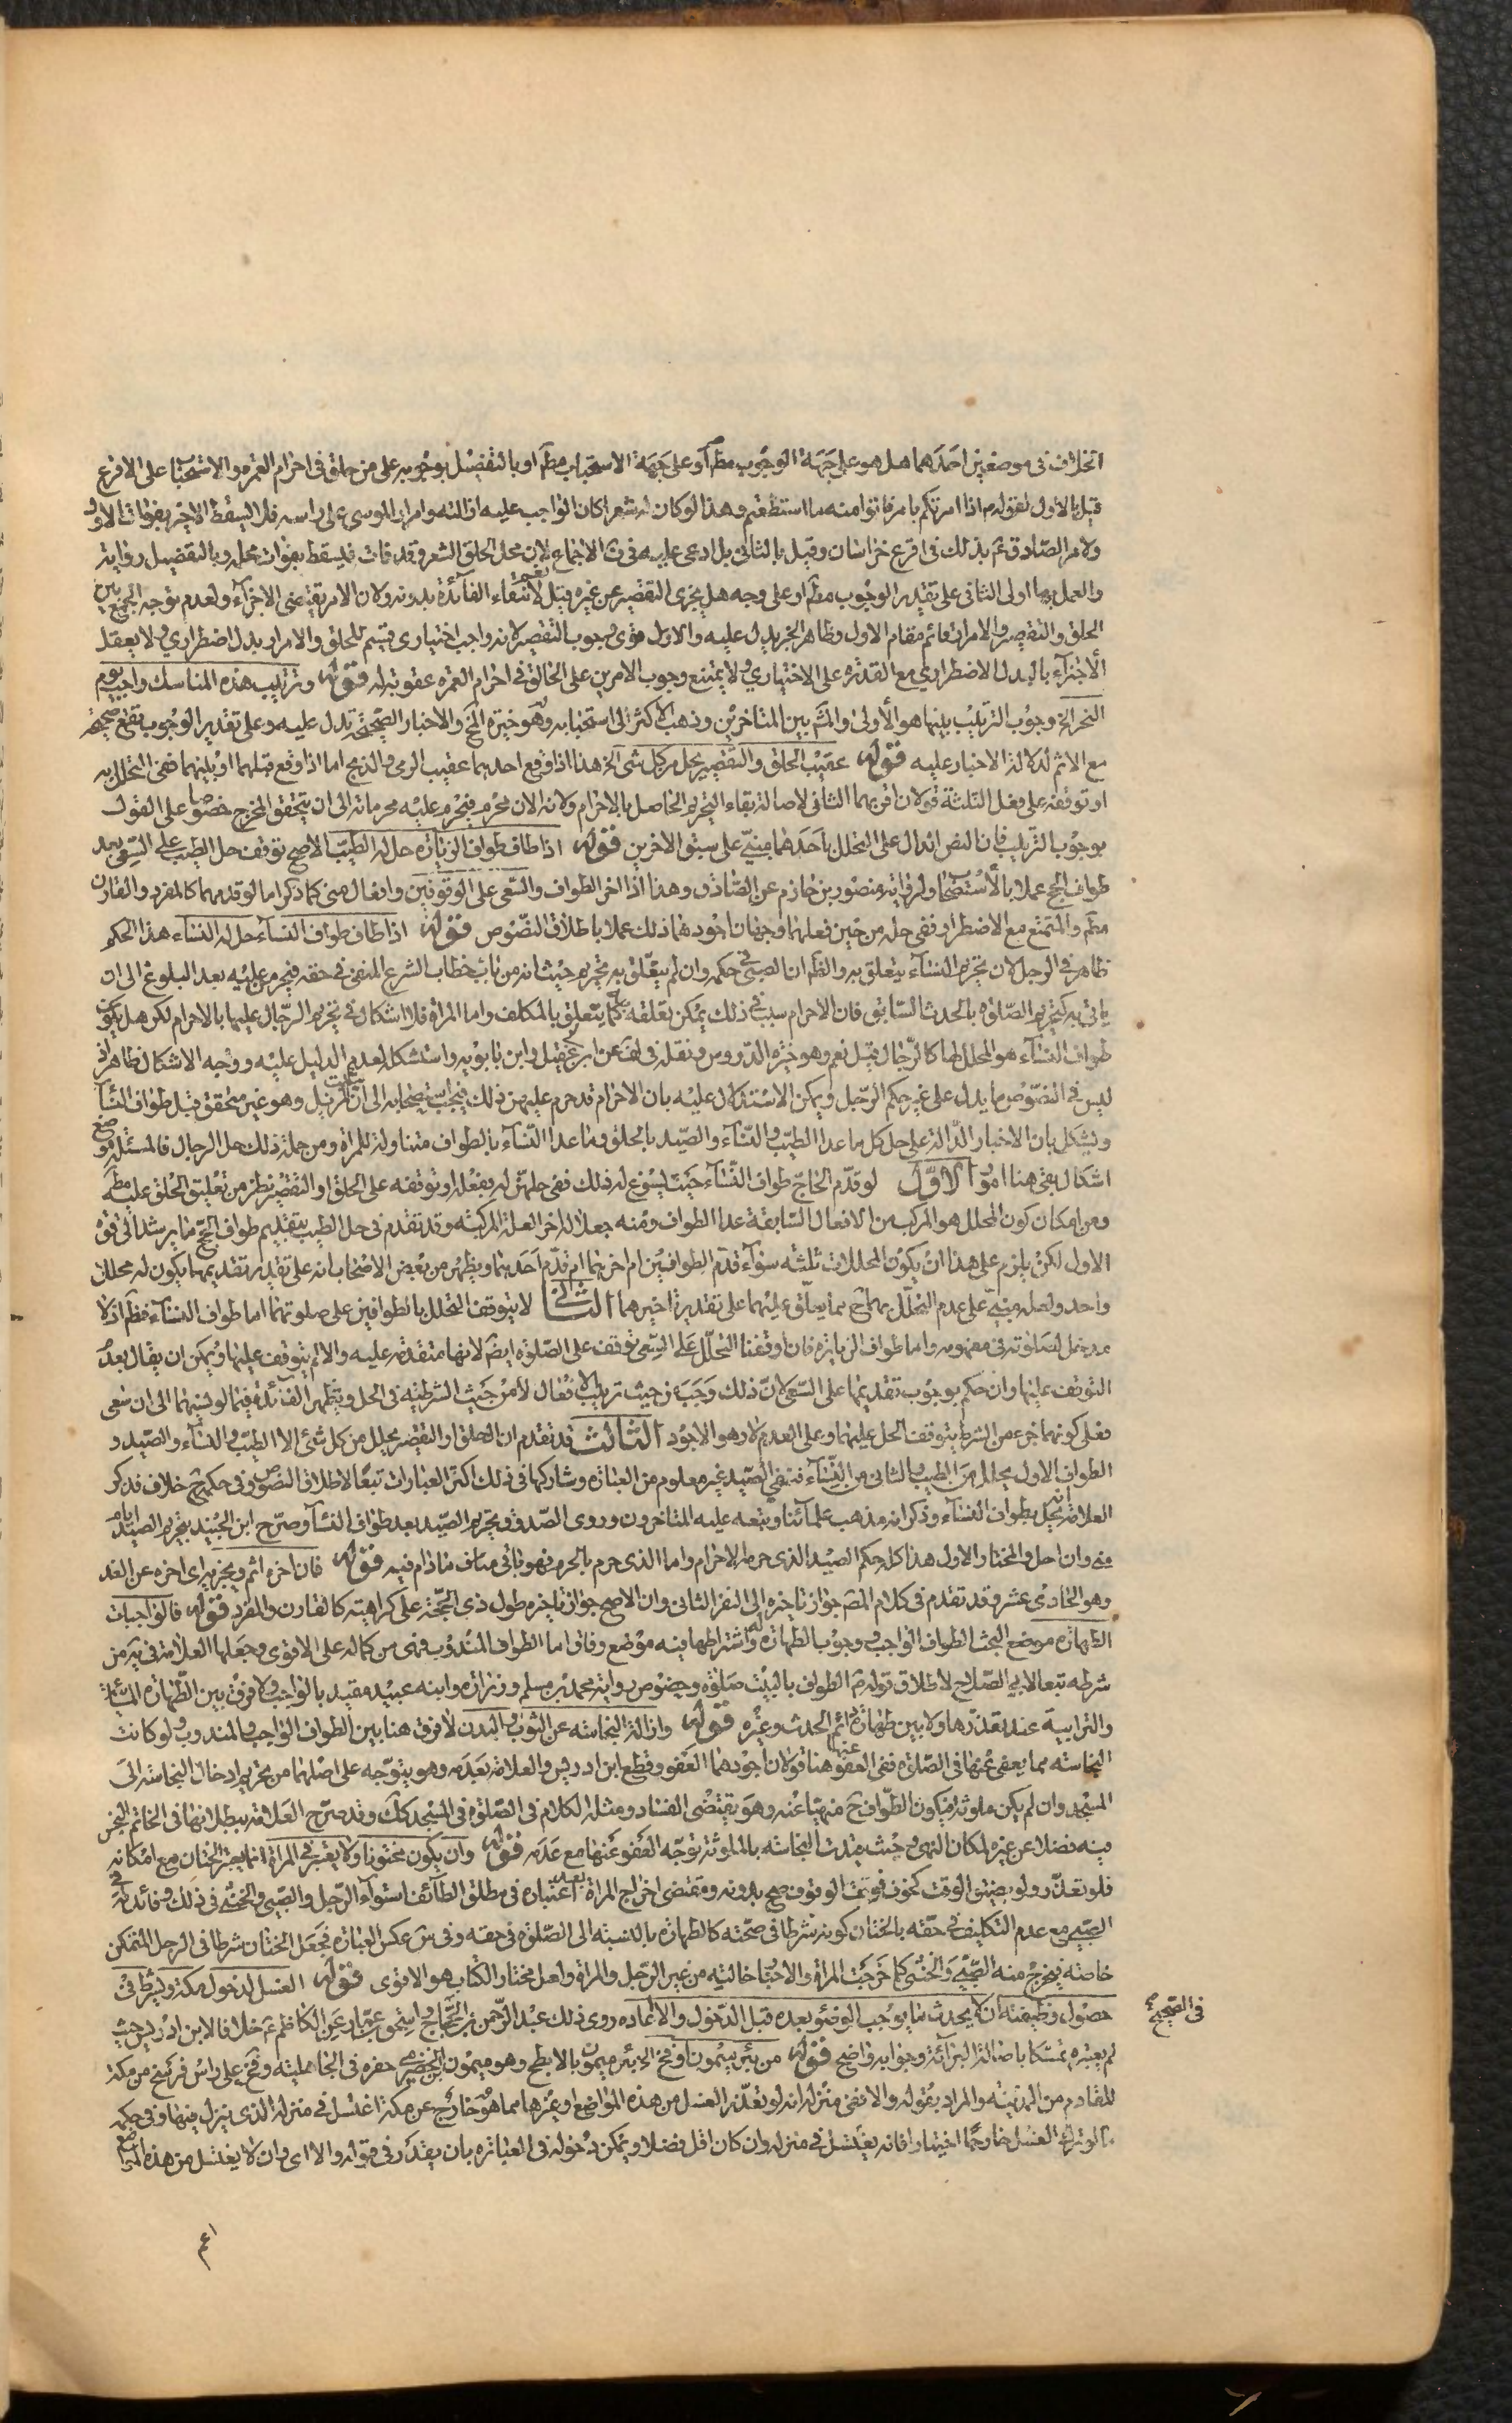 الخلاف في موضعين احدهما هل هو على جهة الوجوب مطم او على جهة الاستحباب مطم او بالتفضيل بوجوبه على من حلق في احرام العمرة والاستحباب على الاقرع
قيل بالاول لقوله م اذا امرتكم بامر فاتوا منه ما استطعتم وهذا لو كان له شعر لكان الواجب عليه ازالته وامرار الموسى على راسه فلا يسقط الاخير بفوات الاول
ولامر الصادق ع بذلك في اقرع خراسان وقيل بالثاني بل ادعى عليه في ف الاجماع لان محل الحلق الشعر وقد فات فيسقط بفوات محله وبالتفصيل رواية
والعمل بها اولى الثاني على تقدير الوجوب مطم او على وجه هل يجزى التقصير عن غيره قيل نعم لانتفاء الفائدة بدونه ولان الامر يقتضي الاجزاء ولعدم توجه الجمع بين
الحلق والتقصير والامرار قائم مقام الاول وظاهر الخبر يدل عليه والاول قوى وجوب التقصير لانه واجب اختياري قسيم للحلق والامرار بدل اضطراري ولا يعقل
الاجتزاء بالبدل الاضطراري مع القدرة على الاختياري ولا يمتنع وجوب الامرين على الحالق في احرام العمرة عقوبة له قوله وترتيب هذه المناسك واجب يوم
النحر الخ وجوب الترتيب بينها هو الأولى والمش بين المتاخرين وذهب الاكثر الى استحبابه وهو خيرة لخ والاخبار الصحيحة تدل عليه وعلى تقدير الوجوب تقع صحيحة
مع الاثم لدلالة الاخبار عليه قوله عقيب الحلق والتقصير يحل من كل شئ الخ هذا اذا وقع احدهما عقيب الرمي والذبح اما اذا وقع قبلهما او بينهما ففي التحلل به
او توقفه على فعل الثلثة قولان اقربهما الثاني لاصالة بقاء التحريم الحاصل بالاحرام ولانه الان محرم فيحرم عليه محرماته الى ان يتحقق المخرج خصوصا على القول
بوجوب الترتيب فان النص الدال على التحلل باحدهما مبني على سبق الاخرين قوله اذا طاف طواف الزيارة حل له الطيب الاصح توقف حل الطيب على السعي بعد
طواف الحج عملا بالاستصحاب ولرواية منصور بن حازم عن الصادق وهذا اذا اخر الطواف والسعي على الوقوفين وافعال منى كما ذكر اما لو قدمهما كالمفرد والقارن
مطم والمتمتع مع الاضطرار ففي حله من حين فعلهما وجهان اجودهما ذلك عملا باطلاق النصوص قوله اذا طاف طواف النساء حل له النساء هذا الحكم
ظاهر في الرجل لان تحريم النساء يتعلق به والظم ان الصبي في حكمه وان لم يتعلق به تحريم حيث انه من باب خطاب الشرع المنفي في حقه فيحرم عليه بعد البلوغ الى ان
ياتي به كتحريم الصلوة بالحدث السابق فان الاحرام سبب في ذلك يمكن تعلقه به كما يتعلق بالمكلف واما المراة فلا اشكال في تحريم الرجال عليها بالاحرام لكن هل يكون
طواف النساء هو المحلل لها كالرجال قيل نعم وهو خيرة الدروس ونقله في لف عن ابن ابي عقيل وابن بابويه واستشكله لعدم الدليل عليه ووجه الاشكال ظاهر اذ
ليس في النصوص ما يدل على غير حكم الرجل ويمكن الاستدلال عليه بان الاحرام قد حرم عليهن ذلك فيجب استصحابه الى ان يثبت المزيل وهو غير متحقق قبل طواف النساء
ويشكل بان الاخبار الدالة على حل كل ما عدا الطيب والنساء والصيد بالحلق وما عدا النساء بالطواف متناولة للمراة ومن جملة ذلك حل الرجال فالمسئلة موضع
اشكال بقي هنا امور الاول لو قدم الحاج طواف النساء حيث يسوغ له ذلك ففي حلهن له بفعله او توقفه على الحلق او التقصير نظر من تعليق الحلق عليه مطم
ومن امكان كون المحلل هو المركب من الافعال السابقة عدا الطواف ومنه جعلا له اخر العلة المركبة وقد تقدم في حل الطيب بتقديم طواف الحج ما يرشد الى قوة
الاول لكن يلزم على هذا ان يكون المحللات ثلثة سواء قدم الطوافين ام اخرهما ام قدم احدهما ويظهر من بعض الاصحاب انه على تقدير تقديمهما يكون له محلل
واحد ولعله مبني على عدم التحلل بهما ح بما يعلق عليهما على تقدير تاخيرهما الثاني لا يتوقف التحلل بالطوافين على صلوتهما اما طواف النساء فظم اذ لا
مدخل لصلوته في مفهومه واما طواف الزيارة فان وقفنا التحلل على السعي توقف على الصلوة ايض لانها متقدمة عليه والا لم يتوقف عليها ويمكن ان يقال بعدم
التوقف عليها وان حكم بوجوب تقديمها على السعي لان ذلك وجب من حيث ترتيب الافعال لا من حيث الشرطية في الحل وتظهر الفائدة فيما لو نسيها الى ان سعى
فعلى كونها جزء من الشرط يتوقف الحل عليها وعلى العدم لا وهو الاجود الثالث قد تقدم ان الحلق او التقصير يحلل من كل شئ الا الطيب والنساء والصيد و
الطواف الاول يحلل من الطيب والثاني من النساء فبقي الصيد غير معلوم من العبارة وشاركها في ذلك اكثر العبارات تبعا لاطلاق النصوص وفي حكمه ح خلاف فذكر
العلامة انه يحل بطواف النساء وذكر انه مذهب علمائنا وتبعه عليه المتاخرون وروى الصدوق تحريم الصيد بعد طواف النساء وصرح ابن الجنيد بتحريم الصيد ايام
منى وان احل والمختار الاول هذا كله حكم الصيد الذي حرمه الاحرام واما الذي حرم بالحرم فهو باق مناف مادام فيه قوله فان اخره اثم ويجزيه اى اخره عن الغد
وهو الحادى عشر وقد تقدم في كلام المص جواز تاخيره الى النفر الثاني وان الاصح جواز تاخيره طول ذي الحجة على كراهية كالقارن والمفرد قوله فالواجبات
الطهارة موضع البحث الطواف الواجب ووجوب الطهارة له واشتراطها فيه موضع وفاق اما الطواف المندوب فهى من كماله على الاقوى وجعلها العلامة في ية من
شرطه تبعا لابي الصلاح لاطلاق قوله م الطواف بالبيت صلوة وخصوص رواية محمد بن مسلم وزرارة وابنه عبيد مقيد بالواجب ولا فرق بين الطهارة المائية
والترابية عند تعذرها ولا بين طهارة دائم الحدث وغيره قوله وازالة النجاسة عن الثوب والبدن لا فرق هنا بين الطواف الواجب والمندوب ولو كانت
النجاسة مما يعفى عنها في الصلوة ففي العفو عنها هنا قولان اجودهما العفو وقطع ابن ادريس والعلامة بعدمه وهو يتوجه على اصلهما من تحريم ادخال النجاسة الى
المسجد وان لم يكن ملوثة فيكون الطواف ح منهيا عنه وهو يقتضى الفساد ومثله الكلام في الصلوة في المسجد كك وقد صرح العلامة ببطلانها في الخاتم النجس
فيه فضلا عن غيره لمكان النهي وحيث قيدت النجاسة بالملوثة توجه العفو عنها مع عدمه قوله وان يكون مختونا ولا يعتبر في المراة انما يعتبر الختان مع امكانه
فلو تعذر ولو بضيق الوقت كخوف فوت الوقوف صح بدونه ومقتضى اخراج المراة بعد اعتباره في مطلق الطائف استواء الرجل والصبي والخنثى في ذلك وفائدته في
الصبي مع عدم التكليف في حقه بالختان كونه شرطا في صحته كالطهارة بالنسبة الى الصلوة في حقه وفي س عكس العبارة فجعل الختان شرطا في الرجل المتمكن
خاصة فيخرج منه الصبي والخنثى كما خرجت المراة والاخبار خالية من غير الرجل والمراة ولعل مختار الكتاب هو الاقوى قوله الغسل لدخول مكة ويشترط في
حصول وظيفته ان لا يحدث ما يوجب الوضوء بعده قبل الدخول والا اعاده روى ذلك عبد الرحمن بن الحجاج واسحق بن عمار عن الكاظم ع خلافا لابن ادريس حيث
في الصحيح
لم يعتبره تمسكا باصالة البراءة وجوابه واضح قوله من بئر ميمون او فخ الخ بئر ميمون بالابطح وهو ميمون الحضرمي حفره في الجاهلية وفخ على راس فرسخ من مكة
للقادم من المدينة والمراد بقوله والا ففي منزله انه لو تعذر الغسل من هذه المواضع او غيرها مما هو خارج عن مكة اغتسل في منزله الذي ينزل فيها وفي حكمه
ما لو ترك الغسل خارجا اختيارا فانه يغتسل في منزله وان كان اقل فضلا ويمكن دخوله في العبارة بان يقدر في قوله والا اى وان لا يغتسل من هذه المواضع